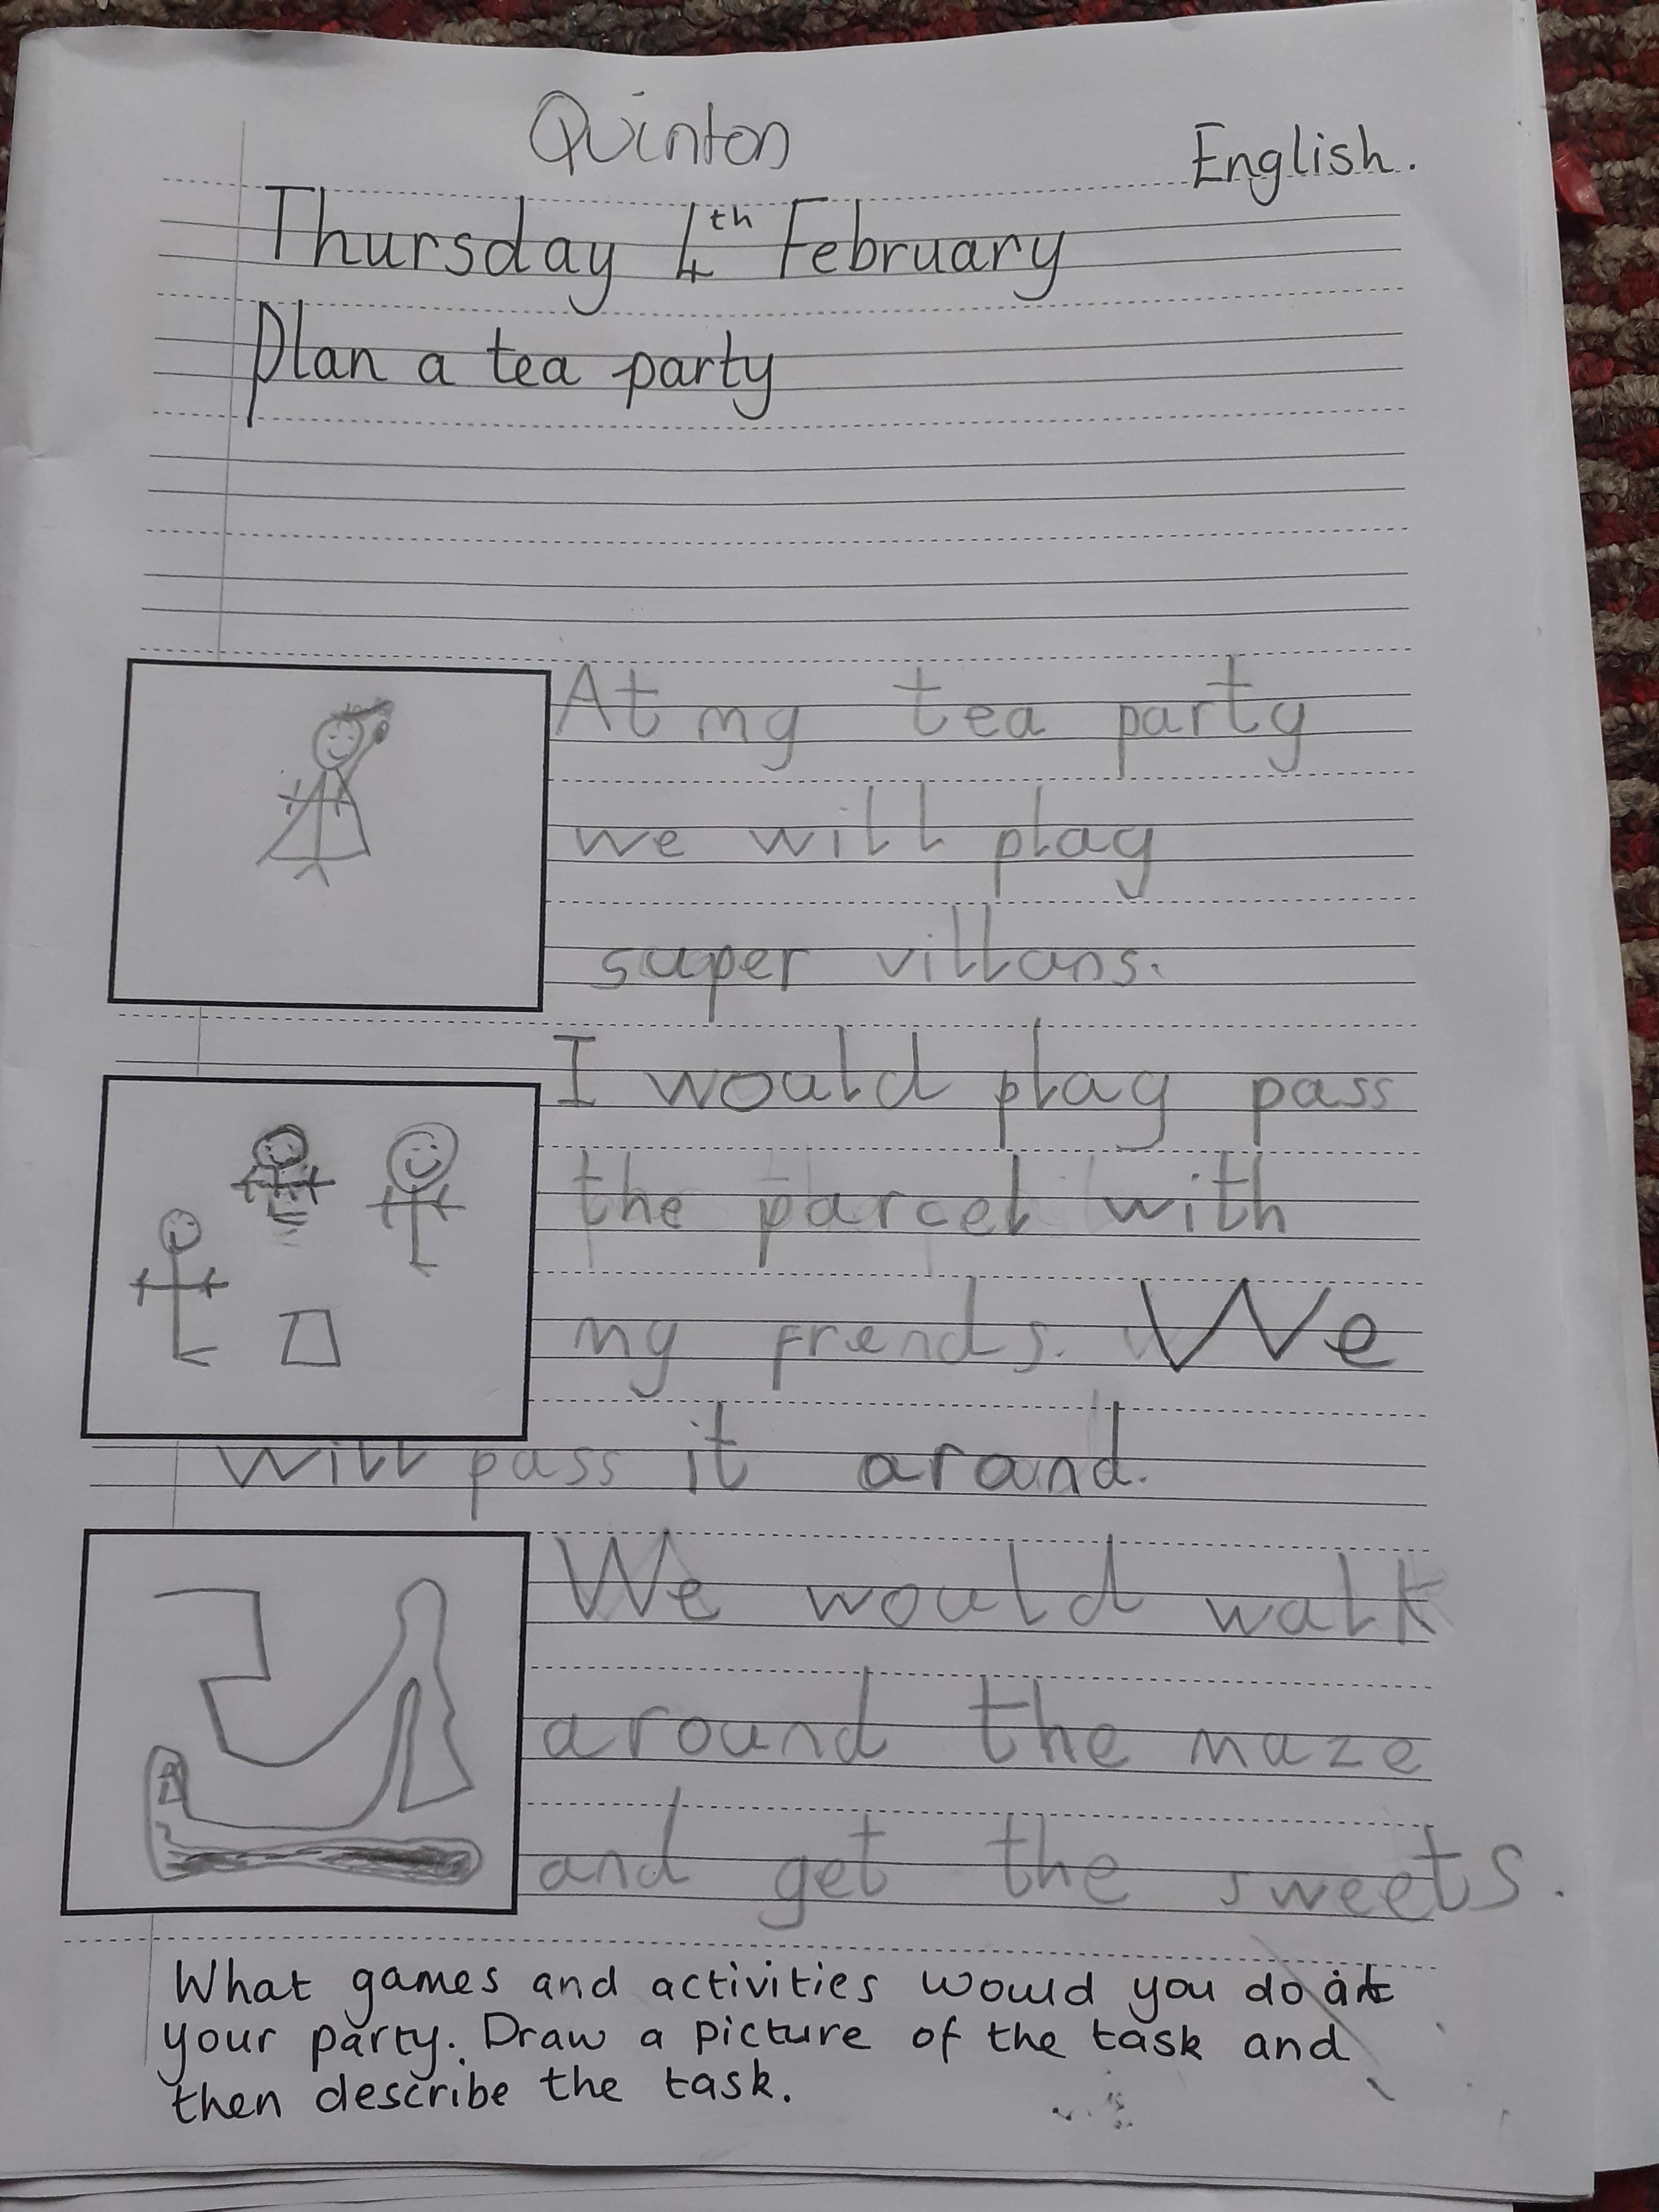 Quinton
English.
Thursday 4th February
Plan a tea party
At my tea party
we will play
super villans.
I would play pass
the parcel with
my frends. We
will pass it around.
We would walk
around the maze
and get the sweets.
What games and activities would you do at
your party. Draw a picture of the task and
then describe the task.